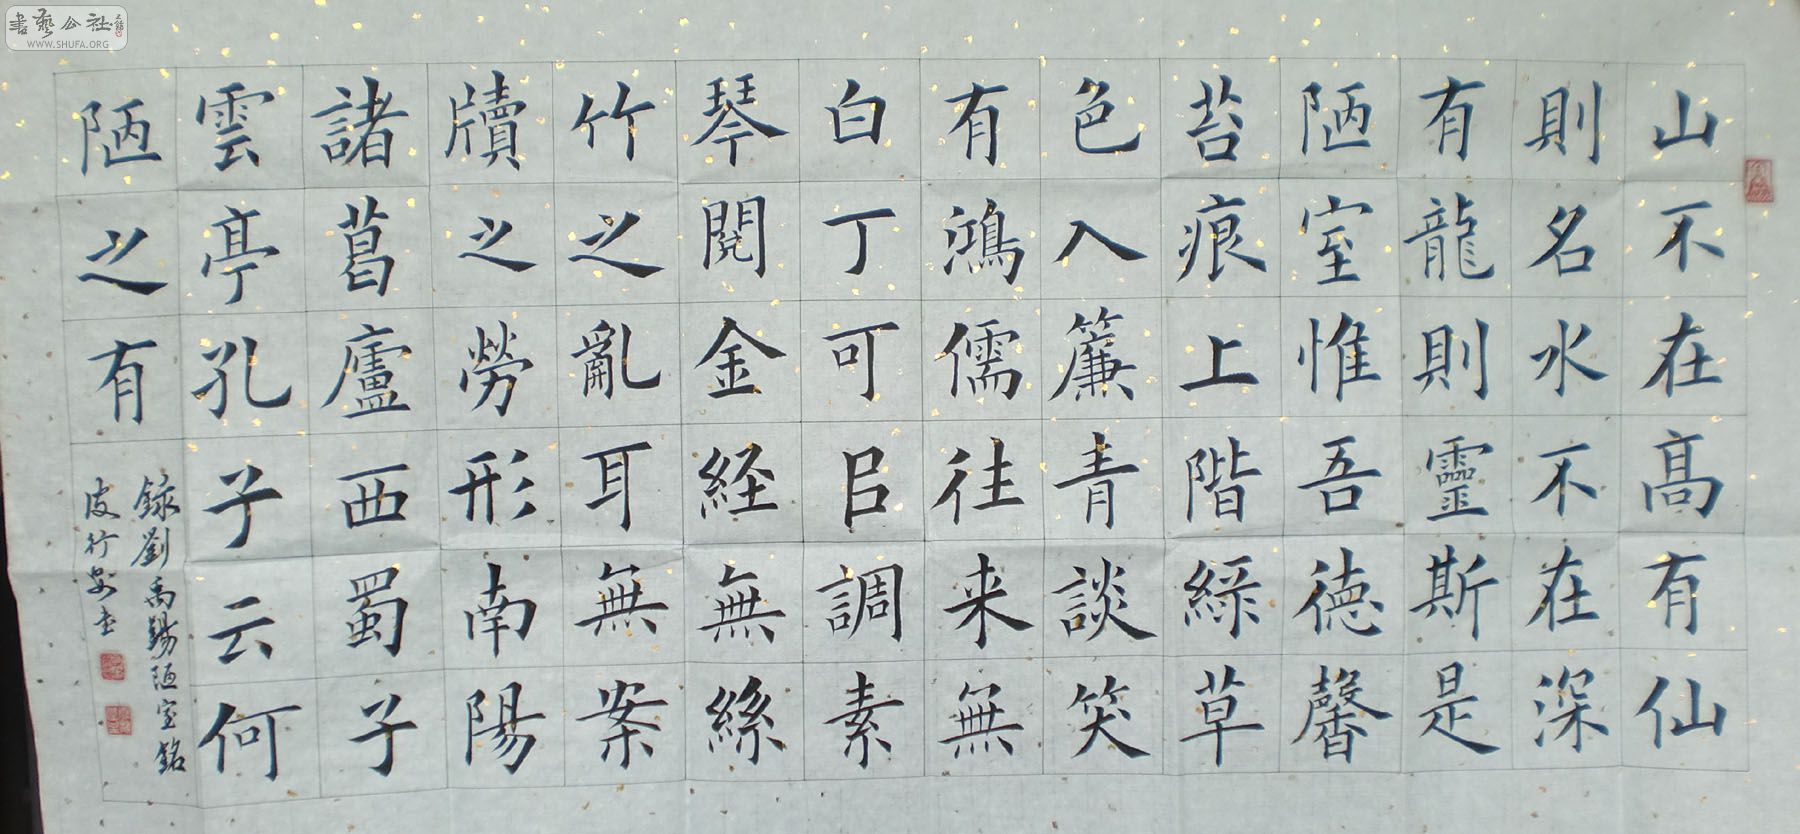 山不在高有仙
則名水不在深
有龍則靈斯是
陋室惟吾德馨
苔痕上階緑草
色入簾青談笑
有鴻儒往来無
白丁可㠯調素
琴閲金経無絲
竹之亂耳無案
牘之勞形南陽
諸葛廬西蜀子
雲亭孔子云何
陋之有
録劉禹錫陋室銘
皮行安书
書藝公社
WWW.SHUFA.ORG